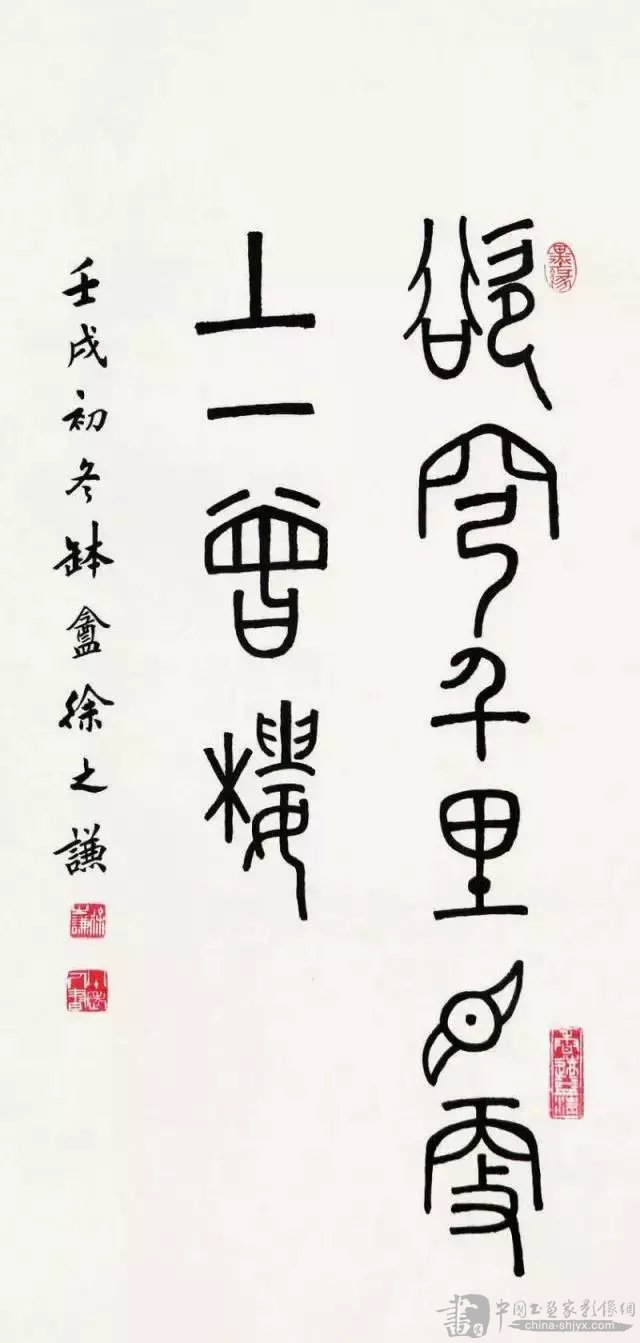 墨緣
欲窮千里目更
上一曾樓
壬戌初冬缽盦徐之謙
中國书画家影像網
china-shjyx.com